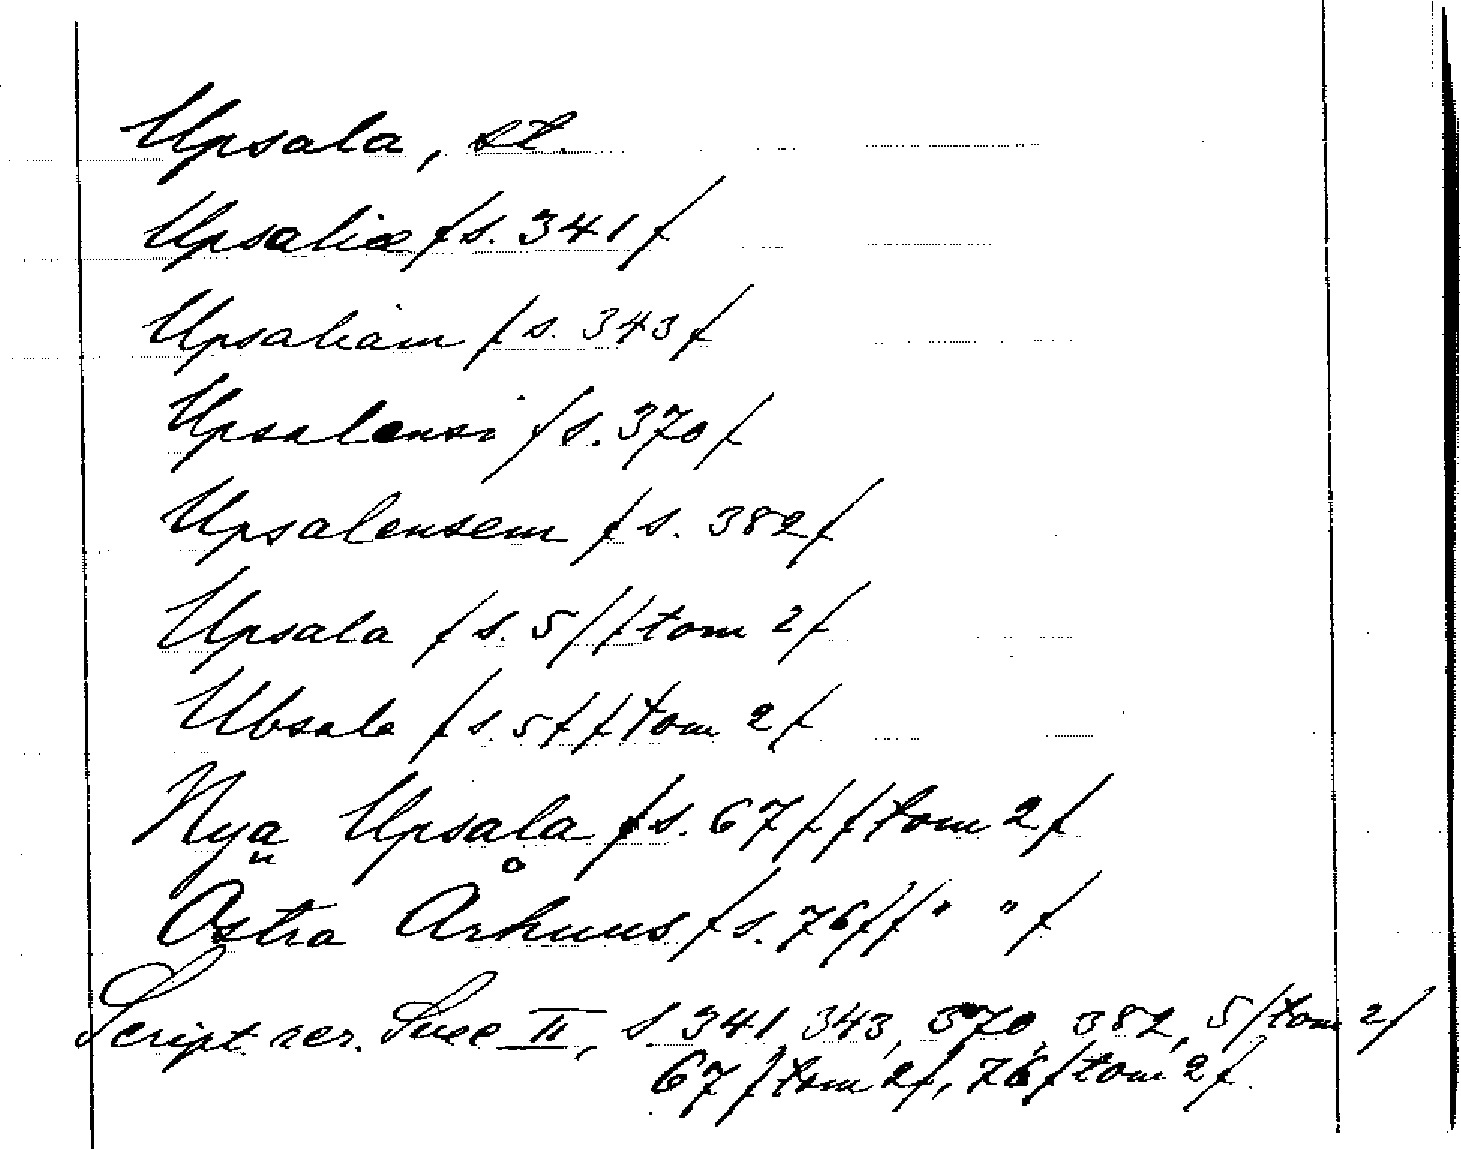 Upsala, st.
Upsaliæ /s. 341/
Upsaliam /s. 343/
Upsalensi /s. 370/
Upsalensem /s. 382/
Upsala /s. 5//tom 2/
Ubsala /s. 5//tom 2/
Nya Upsala /s. 67//tom 2/
Östra Århuus /s. 76//" "/
Script rer. Suec II, s. 341, 343, 370, 382, 5/tom 2/
67/tom 2/, 76/tom 2/.